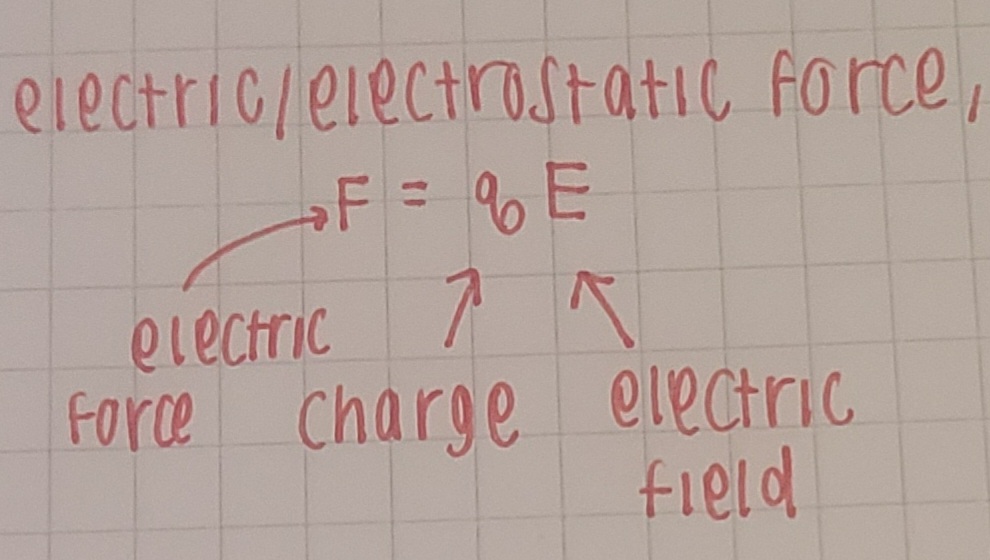 electric/electrostatic force,
F = qE
electric
force charge electric
field